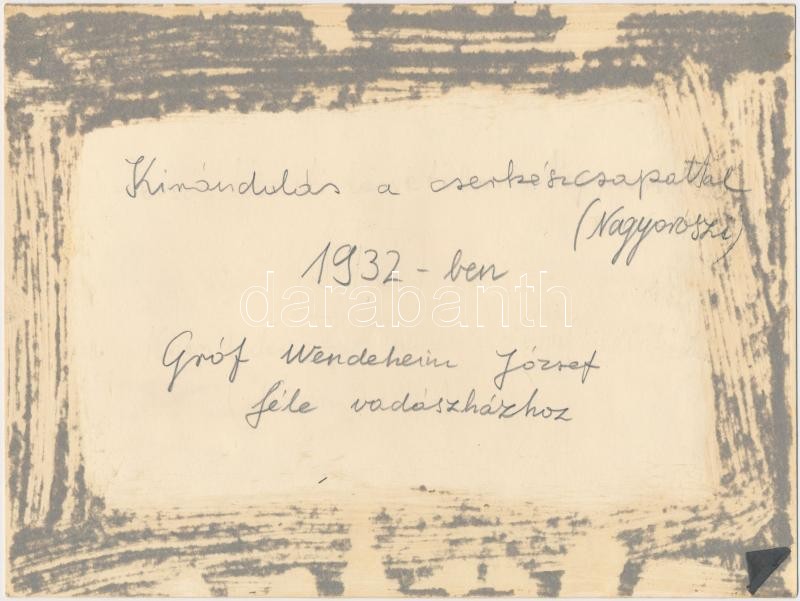 Kirándulás a cserkészcsapattal
(Nagyoroszi)
1932-ben
darabanth
Gróf Wendeheim József
féle vadászházhoz